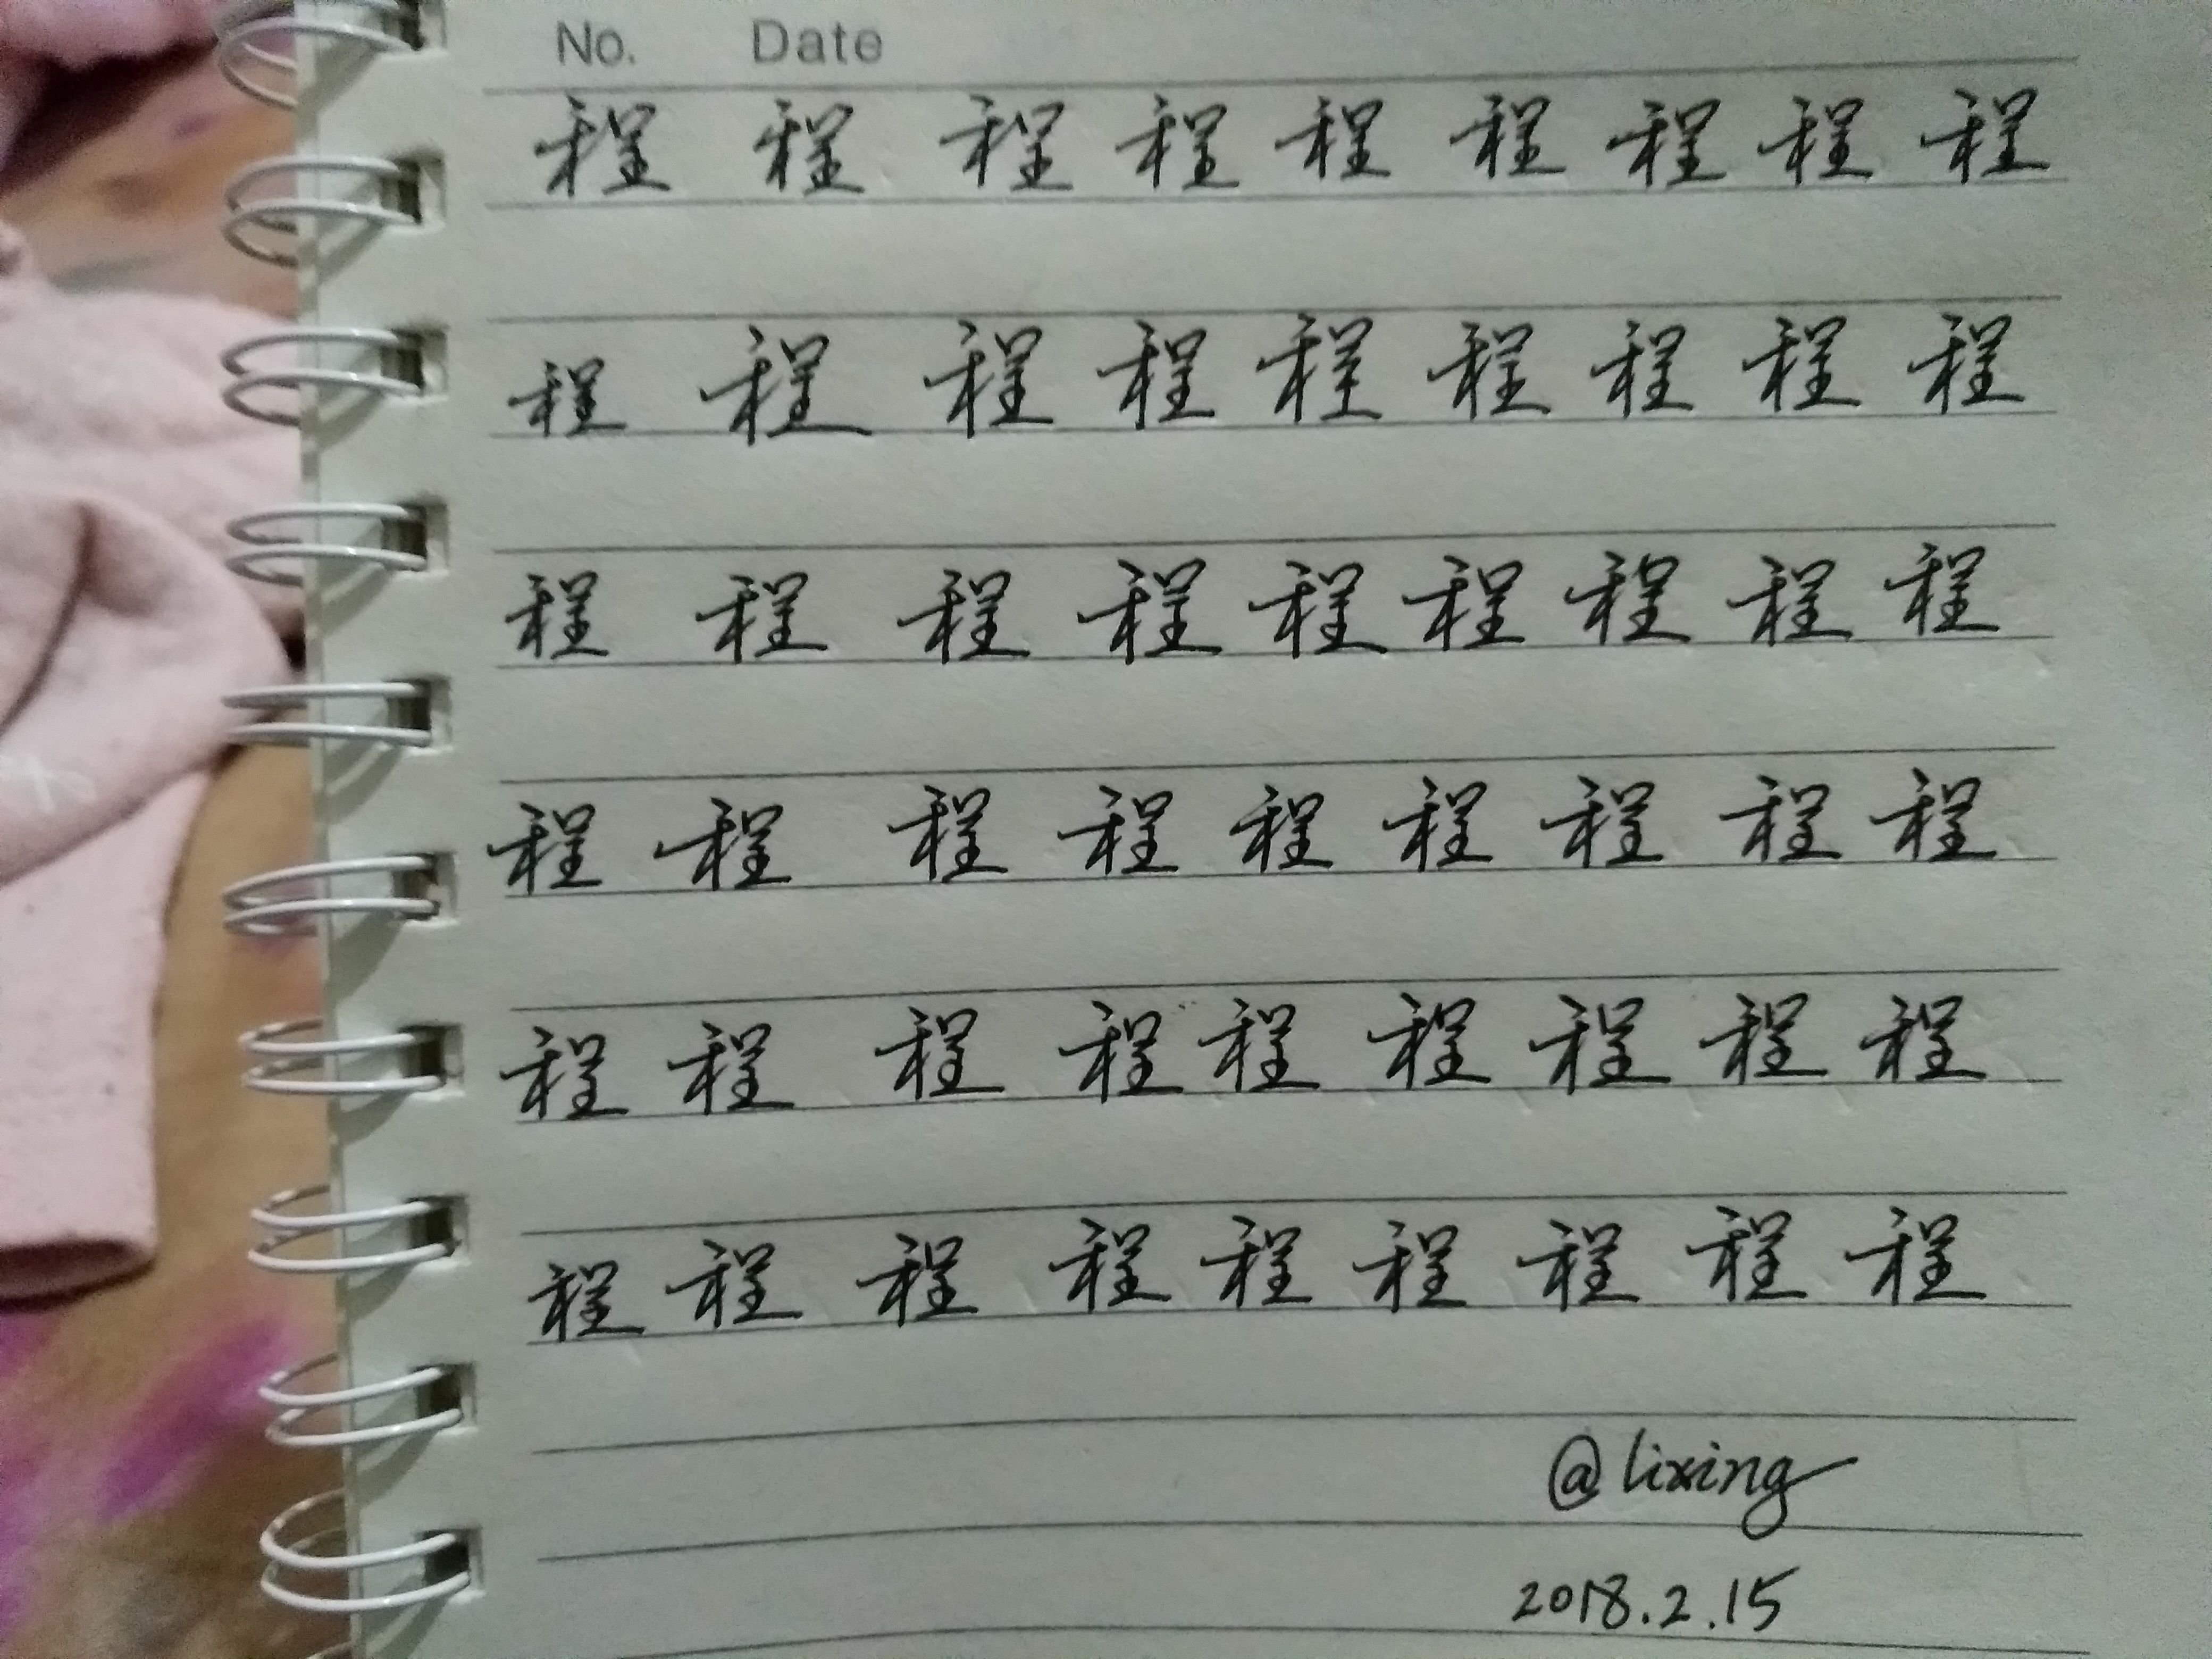 No. Date
程 程 程 程 程 程 程 程 程
程 程 程 程 程 程 程 程 程
程 程 程 程 程 程 程 程 程
程 程 程 程 程 程 程 程 程
程 程 程 程 程 程 程 程 程
程 程 程 程 程 程 程 程 程
@lixing
2018.2.15